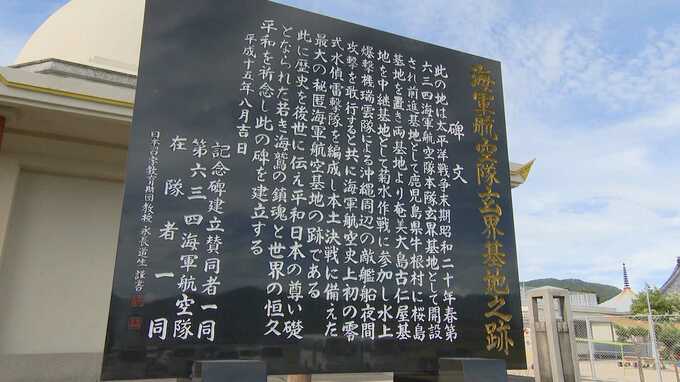 海軍航空隊玄界基地之跡
碑文
此の地は太平洋戦争末期昭和二十年春第
六三四海軍航空隊本隊玄界基地として開設
され前進基地として鹿児島県牛根村に桜島
基地を置き両基地より奄美大島古仁屋基
地を中継基地として菊水作戦に参加し水上
爆撃機瑞雲隊による沖縄周辺の敵艦船夜間
攻撃を敢行すると共に海軍航空史上初の零
式水偵雷撃隊を編成し本土決戦に備えた
最大の秘匿海軍航空基地の跡である
此に歴史を後世に伝え平和日本の尊い礎
となられた若き海鷲の鎮魂と世界の恒久
平和を祈念し此の碑を建立する
平成十五年八月吉日
記念碑建立賛同者一同
第六三四海軍航空隊
在隊者一同
日本習字教育財団教授 永長道生 謹書